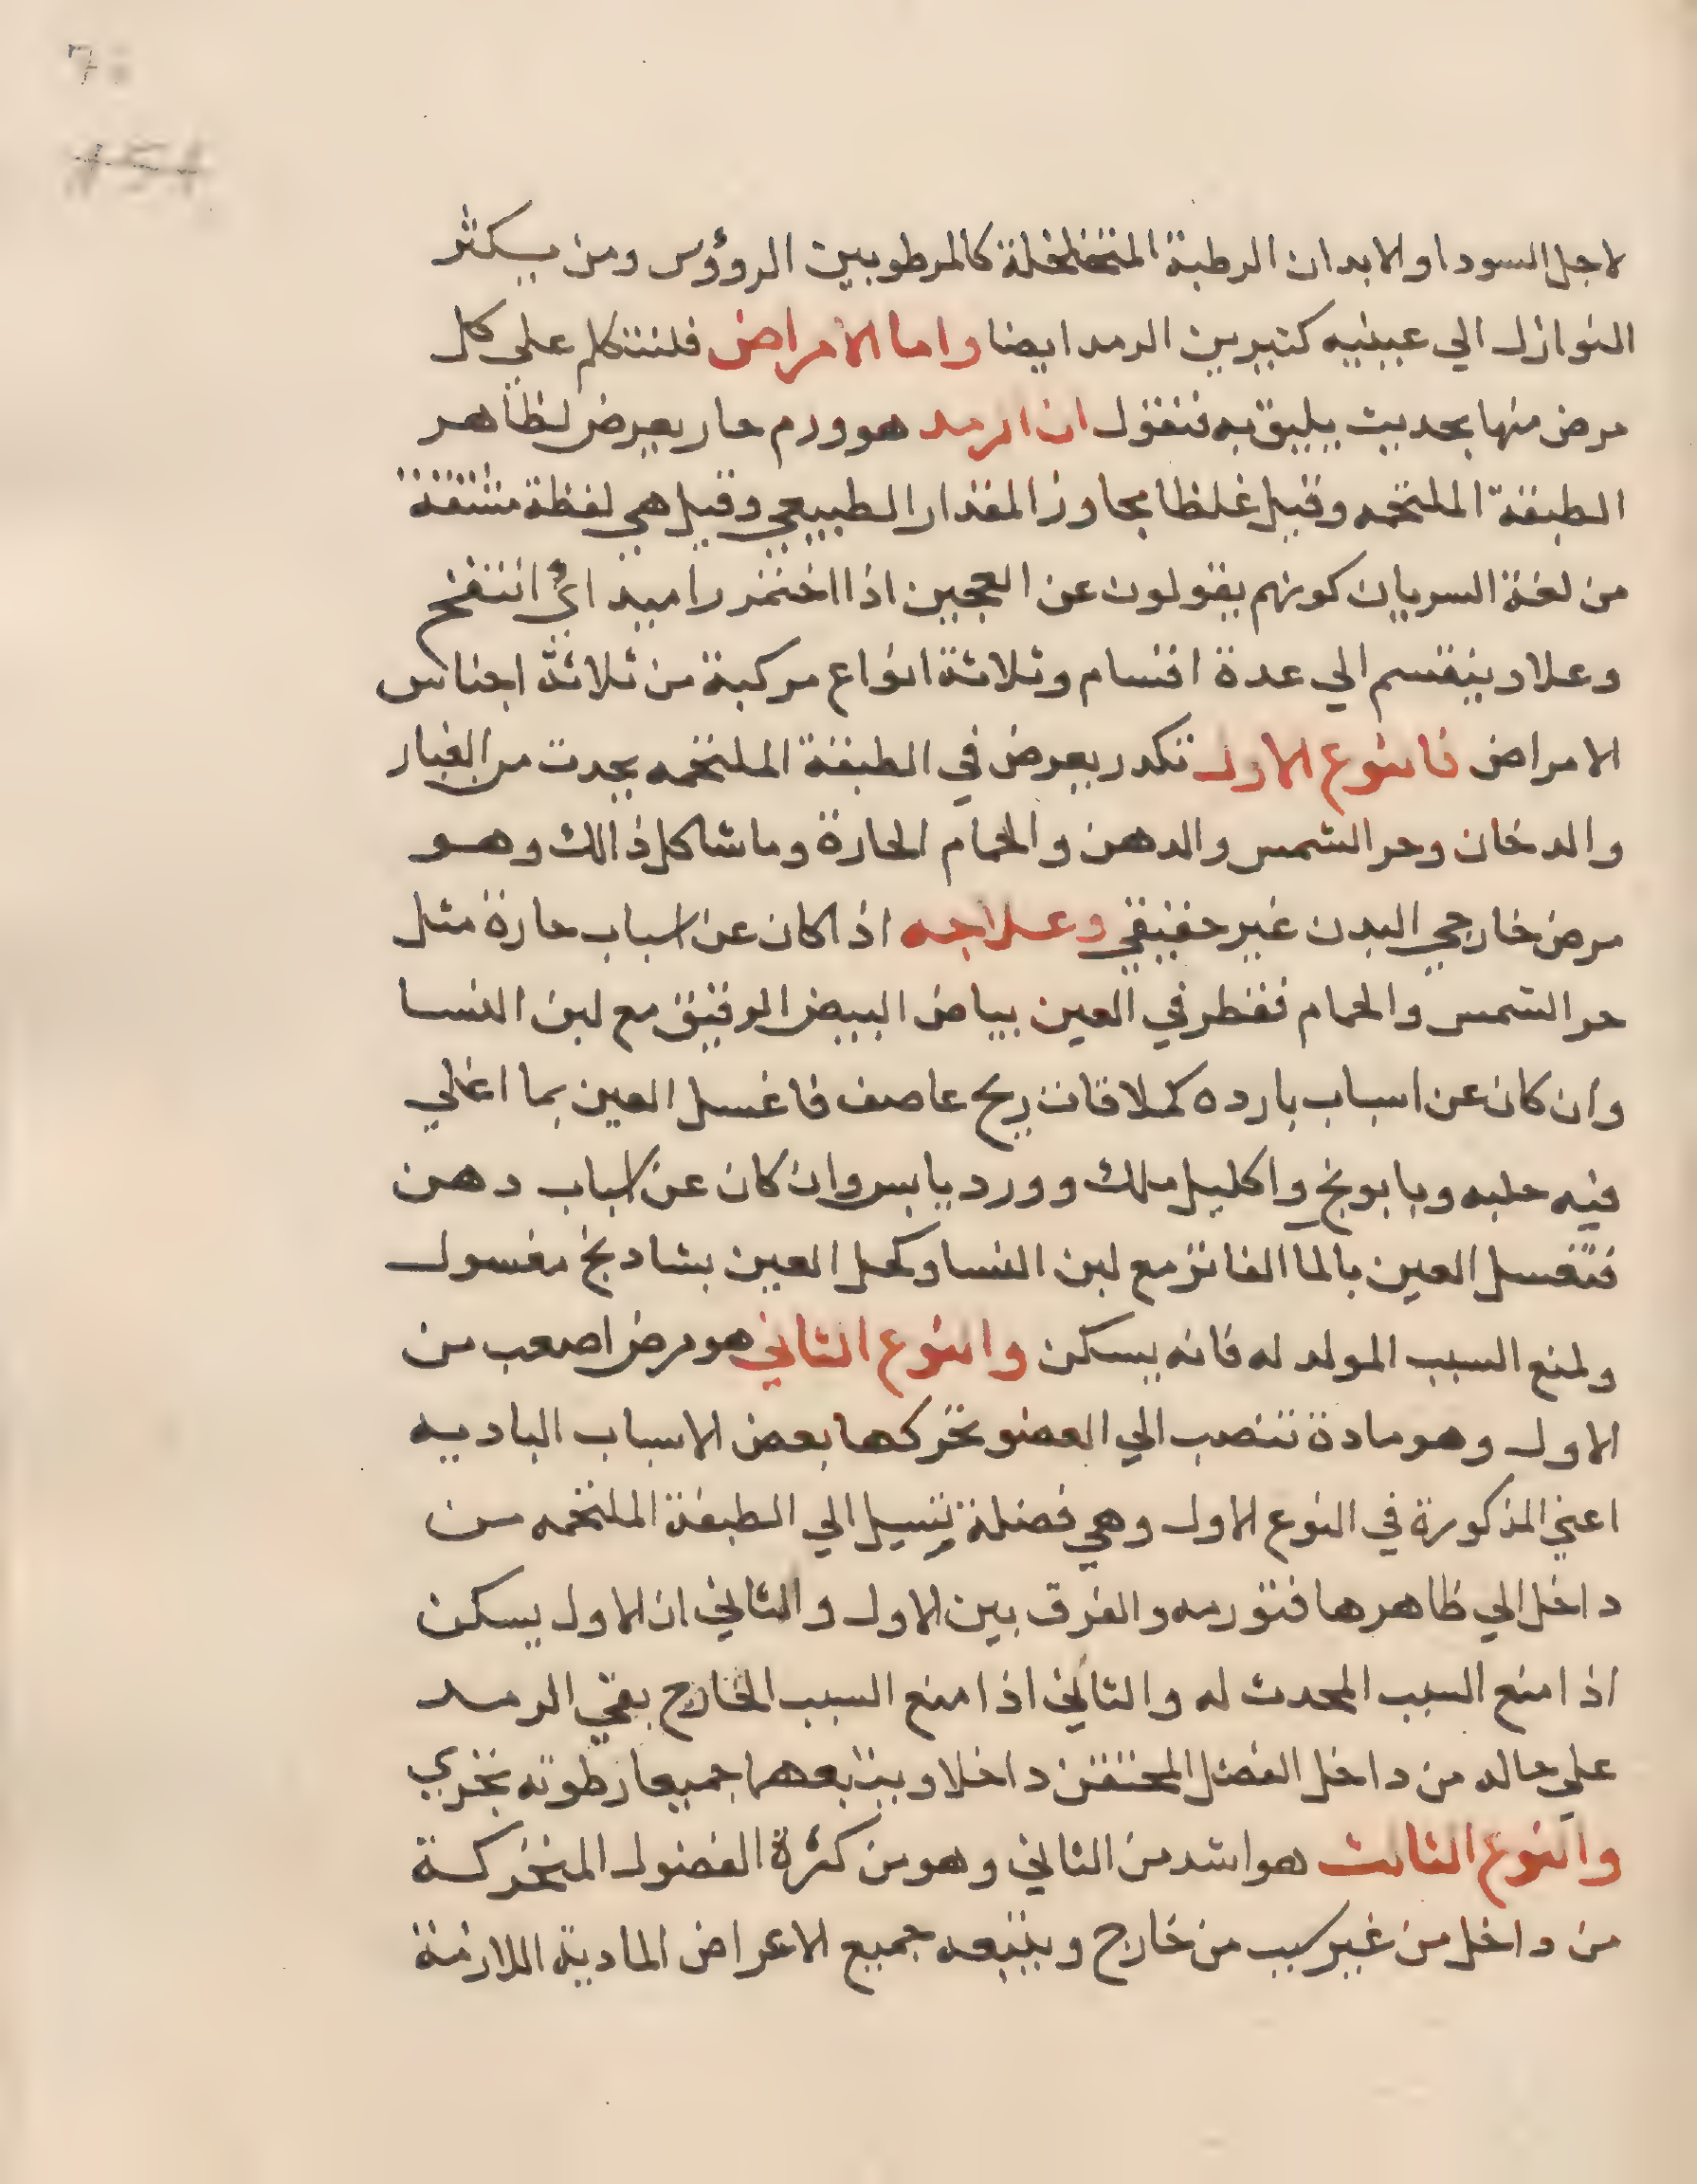 لاجل السودا والابدان الرطبة المتخلخلة كالمرطوبين الرووس ومن يكثر
النوازل الي عينيه كثيرين الرمد ايضا واما الامراض فلنتكلم علي كل
مرض منها بحديث يليق به فنقول ان الرمد هو ورم حار يعرض لظاهر
الطبقة الملتحمه وقيل غلظا مجاوز المقدار الطبيعي وقيل هي لفظة مشتقة
من لغة السريان كونهم يقولون عن العجين اذا اختمر راميد اي انتفخ
وعلا وينقسم الي عدة اقسام وثلاثة انواع مركبة من ثلاثة اجناس
الامراض فالنوع الاول تكدر يعرض في الطبقة الملتحمه يحدث من الغبار
والدخان وحر الشمس والدهن والحمام الحارة وما شاكل ذالك وهو
مرض خارجي البدن غير حقيقي وعلاجه اذا كان عن اسباب حارة مثل
حر الشمس والحمام فقطر في العين بياض البيض الرقيق مع لبن النسا
وان كان عن اسباب بارده كملاقات ريح عاصف فاغسل العين بما اغلي
فيه حلبه وبابونج واكليل ملك وورد يابس وان كان عن اسباب دهن
فتغسل العين بالما الفاتر مع لبن النسا وكحل العين بشادنج مغسول
ولمنع السبب المولد له فانه يسكن والنوع الثاني هو مرض اصعب من
الاول وهو مادة تنصب الي العضو تحركها بعض الاسباب الباديه
اعني المذكورة في النوع الاول وهي فضلة تسيل الي الطبقة الملتحمه من
داخل الي ظاهرها فتورمه والفرق بين الاول والثاني ان الاول يسكن
اذا امنع السبب المحدث له والثاني اذا امنع السبب الخارج بقي الرمد
علي حاله من داخل الفضل المحتقن داخلا ويتبعهما جميعا رطوبه تجري
والنوع الثالث هو اشد من الثاني وهو من كثرة الفضول المتحركة
من داخل من غير سبب من خارج ويتبعه جميع الاعراض المادية اللازمة